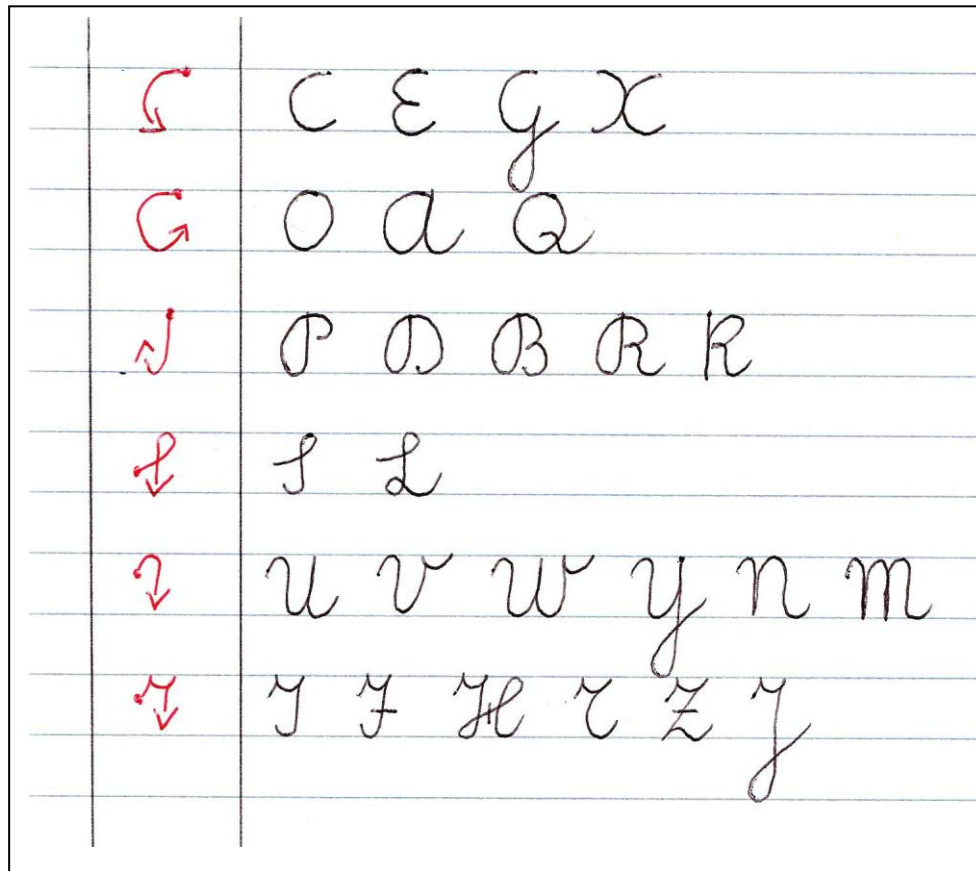 C E G X
O A Q
P D B R K
S L
U V W Y N M
I F H T Z J